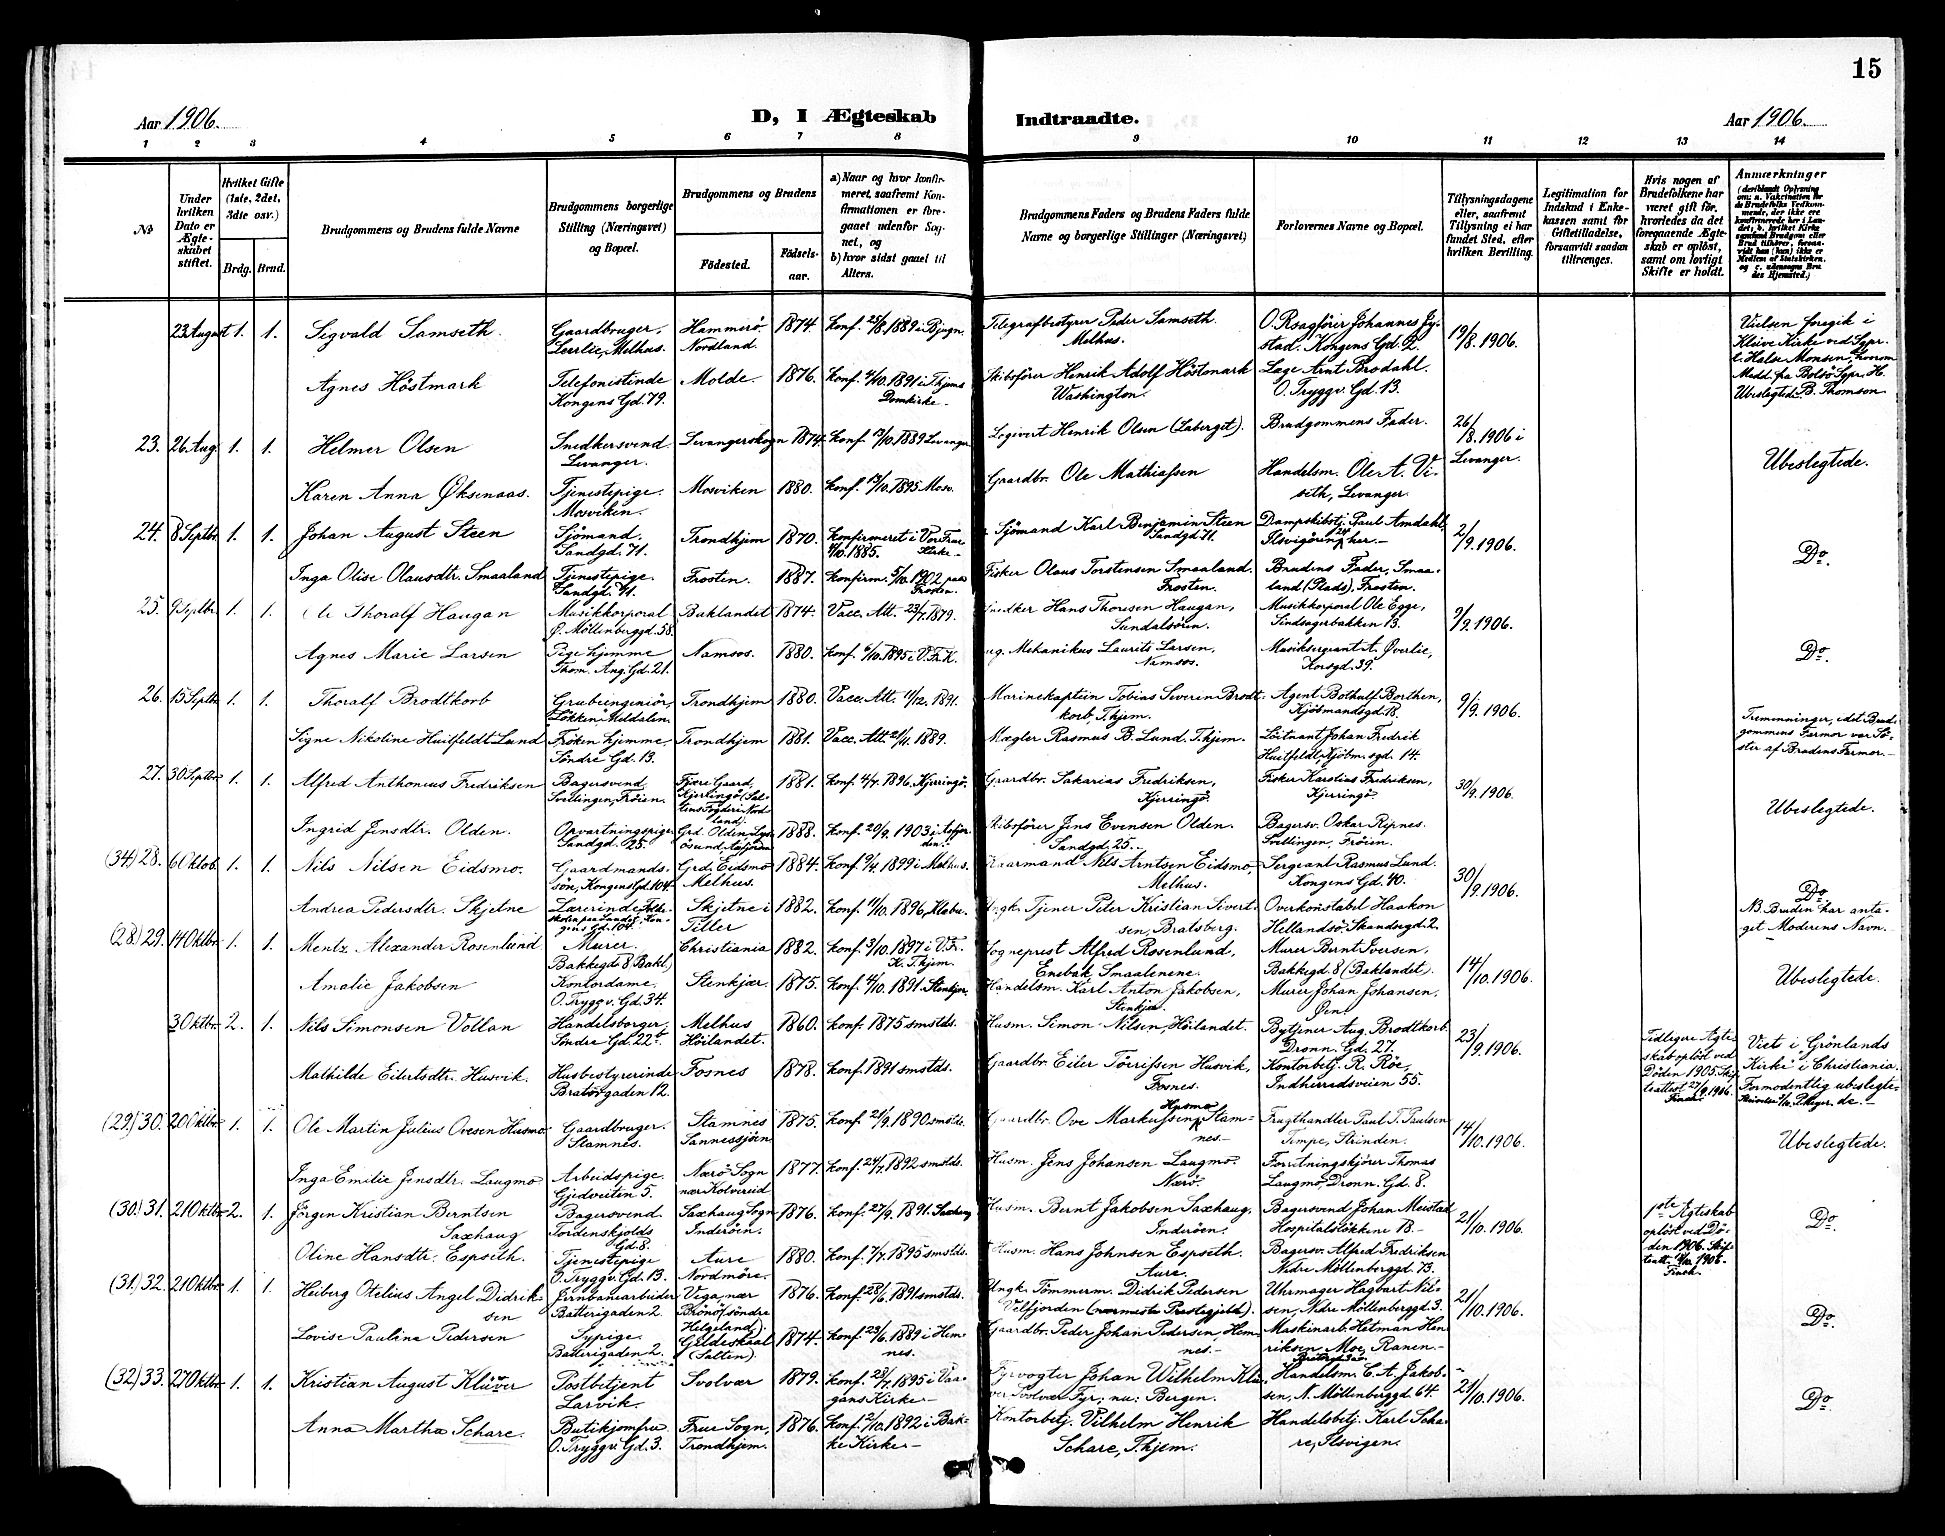 15
Aar 1906.
D, I Ægteskab Indtraadte.
Aar 1906.
1 2 3 4 5 6 7 8 9 10 11 12 13 14
№
Under hvilken Dato er Ægteskabet stiftet.
Hvilket Gifte (1ste, 2det, 3dte osv.)
Brdg. Brud.
Brudgommens og Brudens fulde Navne
Brudgommens borgerlige Stilling (Næringsvei) og Bopæl.
Brudgommens og Brudens
Fødested.
Fødselsaar.
a) Naar og hvor konfirmeret, saafremt Konfirmationen er foregaaet udenfor Sognet, og
b) hvor sidst gaaet til Alters.
Brudgommens Faders og Brudens Faders fulde Navne og borgerlige Stillinger (Næringsvei)
Forlovernes Navne og Bopæl.
Tillysningsdagene eller, saafremt Tillysning ei har fundet Sted, efter hvilken Bevilling.
Legitimation for Indskud i Enkekassen samt for Giftetilladelse, forsaavidt saadan tiltrænges.
Hvis nogen af Brudefolkene har været gift før, hvorledes da det foregaaende Ægteskab er opløst, samt om lovligt Skifte er holdt.
Anmærkninger
23 August 1. 1. Sigvald Samseth. Gaardbruger, Leerlie, Melhus. Hammerö, Nordland. 1874 Konf. 25/8.1889 i Bjugn. Telegrafbestyrer Peder Samseth. Melhus. O.Rsagfører Johannes Jystad. Kongens Gd. 2. 19/8.1906. Vielsen foregik i Kleive Kirke ved Sgpr.
Agnes Höstmark Telefonistinde Kongens Gd. 79. Molde. 1876. Konf. 4/10.1891 i Thjems Domkirke. Skibsfører Henrik Adolf Höstmark Washington. Læge Arnt Brodahl. O. Tryggv. Gd. 13. Ubeslegtede. B. Thomson
23. 26 Aug. 1. 1. Helmer Olsen Snedkersvend Levanger. Levangerskogn 1874. Konf. 13/10.1889 Levanger. Logivert Henrik Olsen (Laberget). Brudgommens Fader. 26/8.1906 i Levanger. Ubeslegtede.
Karen Anna Øksenaas. Tjenestepige. Mosviken. Mosviken 1880. Konf. 13/10.1895 Mosv. Gaardbr. Ole Mathiassen Handelsm. Ole A. Viseth, Levanger.
24. 8 Septbr. 1. 1. Johan August Steen Sjömand. Sandgd. 71. Trondhjem 1870. Konfirmeret i Vor Frue Kirke 4/10.1885. Sjömand Karl Benjamin Steen Sandgd 71. Dampskibstj. Paul Amdahl, Ilsvigören 24 her. 2/9.1906. Do.
Inga Olise Olausdtr. Smaaland Tjenestepige. Sandgd. 71. Frosten. 1887. Konfirm. 5/10.1902 paa Frosten. Fisker Olaus Torstensen Smaaland. Frosten. Brudens Fader, Smaaland (Plads), Frosten.
25. 9 Septbr. 1. 1. Ole Thoralf Haugan Musikkorporal Ø. Möllenberggd. 58. Baklandet 1874. Vacc. Att. 23/7.1879. Snedker Hans Thoresen Haugan, Sundalsören. Musikkorporal Ole Egge, Sindsagerbakken 13. 9/9.1906.
Agnes Marie Larsen Pige hjemme Thom. Ang. Gd. 21. Namsos. 1880. Konf. 6/10.1895 i V. Fr. K. ug. Mekanikus Laurits Larsen, Namsos. Musiksergeant A. Øverlie, Korsgd. 39. Do.
26. 15 Septbr. 1. 1. Thoralf Brodtkorb Grubeingeniör, Løkken, Meldalen. Trondhjem 1880. Vacc. Att. 11/12.1891. Marinekaptein Tobias Severin Brodtkorb, T.hjem. Agent Bothulf Borthen, Kjöbmandsgd. 18. 9/9.1906. Tremenninger, idet Brudgommens Farmor var Söster af Brudens Farmor.
Signe Nikoline Huitfeldt Lund Frøken hjemme, Söndre Gd. 13. Trondhjem 1881. Vacc. Att. 21/11.1889. Mægler Rasmus B. Lund. T.hjem. Löitnant Johan Fredrik Huitfeldt, Kjöbm.sgd. 14.
27. 30 Septbr. 1. 1. Alfred Anthonius Fredriksen Bagersvend, Svellingen, Fröien. Fjære Gaard, Kjerringö (Saltens Fogderi, Nordland). 1881. Konf. 4/7.1896. Kjerringö. Gaardbr. Sakarias Fredriksen, Kjerringö. Fisker Karolius Fredriksen, Kjerringö. 30/9.1906. Ubeslegtede.
Ingrid Jensdtr. Olden. Opvartningspige Sandgd. 25. Grd. Olden, Lysösund, Aafjorden 1888. Konf. 20/9.1903 i Aafjorden. Skibsfører Jens Evensen Olden. Sandgd. 25. Bagersv. Oskar Ripnes. Svellingen, Fröien.
(34) 28. 6 Oktob. 1. 1. Nils Nilsen Eidsmo. Gaardmandssön, Kongens Gd. 104. Grd. Eidsmo Melhus. 1884. Konf. 9/4.1899 i Melhus. Kaarmand Nils Arntsen Eidsmo, Melhus. Sergeant Rasmus Lund. Kongens Gd. 40. 30/9.1906. Do
Andrea Pedersdtr. Skjetne Lærerinde Folkeskolen paa Landet, Kongens Gd. 104. Skjetne i Tiller 1882. Konf. 11/10.1896, Klæbu. Ungk. Tjener Peter Kristian Sivertsen, Bratsberg. Overkonstabel Haakon Hellandsö. Skansegd. 2. NB. Bruden har antaget Moderens Navn.
(28) 29. 14 Oktbr. 1. 1. Mentz Alexander Rosenlund Murer. Bakkegd. 8 (Bakl.) Christiania 1882. Konf. 3/10.1897 i V. Fr. K. T.hjem. Sogneprest Alfred Rosenlund, Enebak, Smaalenene. Murer Bernt Iversen, Bakkegd. 8 (Baklandet). 14/10.1906.
Amalie Jakobsen Kontordame. O. Tryggv. Gd. 34. Stenkjær. 1875. Konf. 4/10.1891. Stenkjær. Handelsm. Karl Anton Jakobsen, Stenkjær. Murer Johan Johansen, Ubeslegtede.
3 Oktbr. 2. 1. Nils Simonsen Vollan Handelsborger, Söndre Gd. 22b. Melhus Höilandet. 1860. Konf. 1875 smstds. Husm. Simon Nilsen, Höilandet. Bytjener Aug. Brodtkorb. Dronn. Gd. 27. 23/9.1906. Tidligere Ægteskab oplöst ved Döden 1905. Skifteattest 27/9.1906. Finch. Viet i Grönlands Kirke i Christiania. Formodentlig ubeslegtede.
Mathilde Eilertsdtr. Husvik. Husbestyrerinde Bratörgaden 12. Fosnes 1878. Konf. 1891 smstds. Gaardbr. Eiler Törrissen Husvik, Fosnes. Kontorbetj. R. Röe, Indherredsveien 55.
(29) 30. 20 Oktbr. 1. 1. Ole Martin Julius Ovesen Husmo Gaardbruger. Stamnes. Stamnes Sannessjöen 1875. Konf. 21/9.1890 smstds. Gaardbr. Ove Markussen Husmo Stamnes. Frugthandler Paul T. Paulsen Tempe, Strinden. 14/10.1906. Ubeslegtede.
Inga Emilie Jensdtr. Laugmo Arbeidspige. Gjedveiten 5. Nærö Sogn nær Kolvereid 1877. Konf. 24/7.1892 smstds. Husm. Jens Johansen Laugmo. Nærö. Forretningskjörer Thomas Laugmo, Dronn. Gd. 8.
(30) 31. 21 Oktbr. 2. 1. Jörgen Kristian Berntsen Saxhaug Bagersvend. Tordenskjolds Gd. 8. Saxhaug Sogn Inderöen. 1876. Konf. 27/9.1891. Saxhaug Husm. Bernt Jakobsen Saxhaug, Inderöen. Bagersvend Johan Meistad Hospitalslökkene 18. 21/10.1906. 1ste Ægteskab oplöst ved Döden 1906. Skifteatt. 1906. Finch. Do.
Oline Hansdtr. Espseth. Tjenestepige O. Tryggv. Gd. 13. Aure Nordmöre. 1880. Konf. 7/7.1895 smstds. Husm. Hans Johnsen Espseth. Aure. Bagersv. Alfred Fredriksen Nedre Möllenberggd. 73.
(31) 32. 21 Oktbr. 1. 1. Heiberg Otelius Angel Didriksen Jernbanearbeider Batterigaden 2. Vega, nær Brönö (söndre Helgeland). 1876. Konf. 28/6.1891 smstds. Ungk. Tömmerm. Didrik Pedersen Velfjorden (nærmeste Prestegjeld). Uhrmager Hagbart Nilsen, Nedre Möllenberggd. 3. 21/10.1906. Do.
Lovise Pauline Pedersen Sypige. Batterigaden 2. Gildeskaal (Salten). 1874. Konf. 23/6.1889 i Hemnes. Gaardbr. Peder Johan Pedersen, Hemnes. Maskinarb. Hetman Henriksen Moe, Ranen.
(32) 33. 27 Oktbr. 1. 1. Kristian August Klüver Postbetjent Larvik. Svolvær 1879. Konf. 28/7.1895 i Vaagans Kirke. Fyrvogter Johan Wilhelm Klüver Svolvær Fyr, nu: Bergen. Handelsm. C. A. Jakobsen, N. Möllenberggd. 64. 21/10.1906. Do.
Anna Martha Schare. Butikjomfru O. Tryggv. Gd. 3. Frue Sogn, Trondhjem. 1876. Konf. 2/10.1892 i Bakke Kirke. Kontorbetj. Vilhelm Henrik Schare, T.hjem. Handelsbetj. Karl Schare, Ilsvigen.